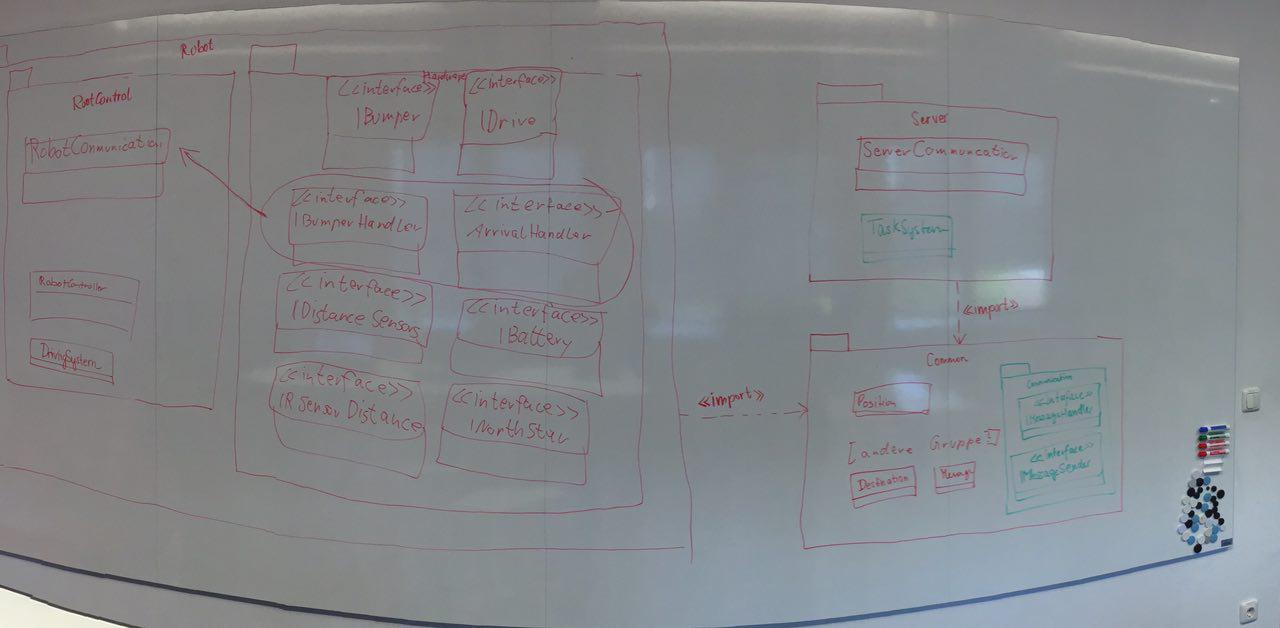 Robot
RootControl
RobotConmunication
RobotController
DrivingSystem
Hardware
<<interface>>
IBumper
<<interface>>
IDrive
<<interface>>
IBumperHandler
<<interface>>
ArrivalHandler
<<interface>>
IDistance Sensors
<<interface>>
IBattery
<<interface>>
IR Sensor Distance
<<interface>>
INorthStar
<<import>>
Server
ServerCommuncation
TaskSystem
<<import>>
Common
Position
[andere Gruppe?]
Destination
Message
Communication
<<interface>>
IMessageHandler
<<interface>>
IMessageSender